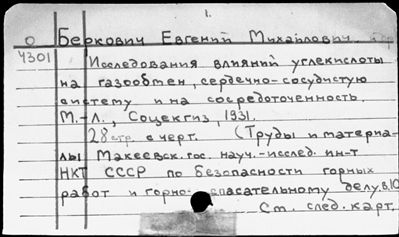 1.
О Беркович Евгений Михайлович
4301 Исследования влияний углекислоты
на газообмен, сердечно-сосудистую
систему и на сосредоточенность.
М.-Л., Соцекгиз, 1931.
28 стр. с черт. (Труды и материа-
лы Макеевск. гос. науч.-исслед. ин-т
НКТ СССР по безопасности горных
работ и горно-спасательному делу. в.10
См. след. карт.